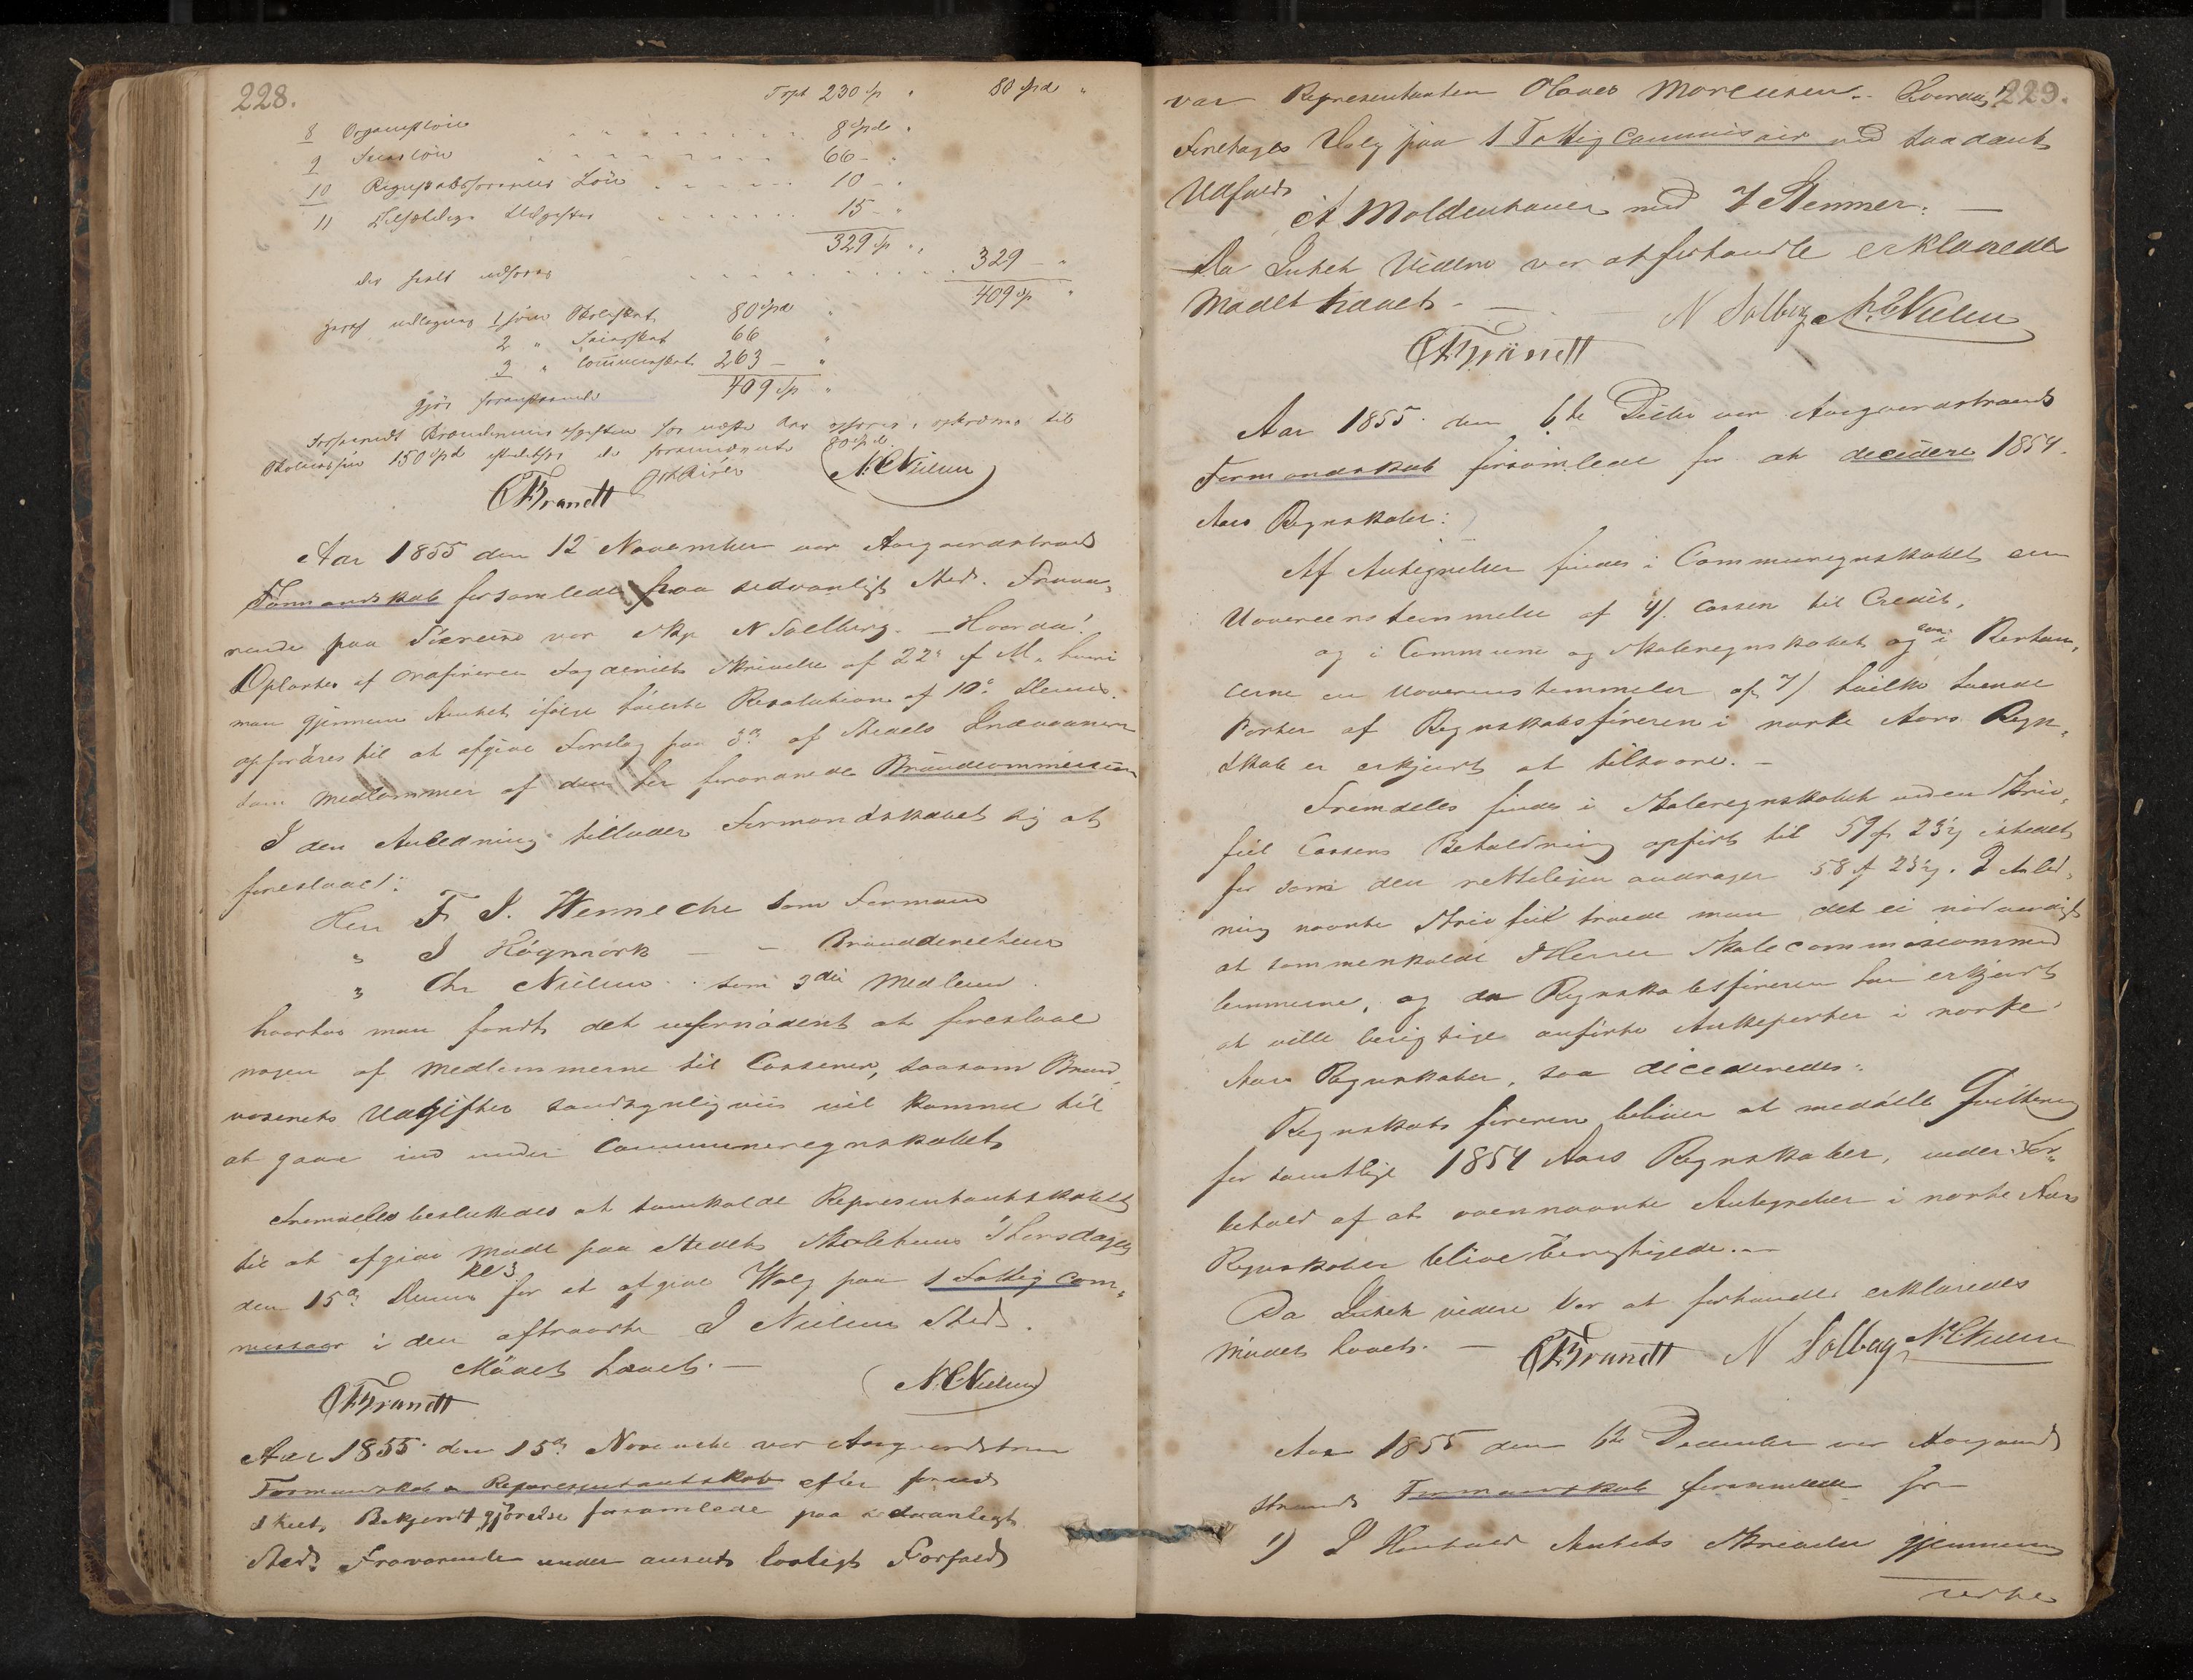 228.
Trpt 230 Sp " 80 Spd "
8 Organistløn 8 Spd "
9 66 - "
10 Regnskabsførerens Løn 10 - "
11 Tilfældige Udgifter 15 - "
329 Sp "
329 - "
409 Sp "
udlignes 1 som Skoleskat 80 Spd "
2 " 66 "
3 " Communeskat 263 - "
gjør 409 Sp "
til
150 Spd 80 Spd.
CFBrandt N.C.Nielsen
Aar 1855 den 12 November var Aasgaardstrands
Formandskab forsamlede paa sedvanligt Sted. Fravæ-
rende paa Søereise var Skp N Solberg. – Hvorda:
Oplæstes af Ordføreren Fogderiets Skrivelse af 22de f. M. hvori
man gjennem Amtet ifølge høieste Resolution af 10de Dennes
opfordres til at afgive Forslag paa 3de af Stedets Indvaanere
som Medlemmer af den her forordnede Brandcommission
I den Anledning tillader Formandskabet sig at
foreslaaet:
Herr F. J. Wenneche som Formand
" J Høgmørk – – Branddirecteur
" Chr Nielsen . . som 3die Medlem.
hvorhos man fandt det ufornødent at foreslaae
nogen af Medlemmerne til Casserer, saasom Brand-
væsenets Udgifter sandsynligviis vil komme til
at gaae ind under Communeregnskabet
Fremdeles besluttedes at samkalde Representantskabet
til at afgive Møde paa Stedets Skolehuus Thorsdagen
den 15de Dennes Kl 3 for at afgive Valg paa 1 Fattig Com-
missair i den aftraadte J Nielsens Sted.
Mødet hævet. –
CFBrandt N.C.Nielsen
Aar 1855 den 15de November var Aasgaardstrans
Formanskab & Representantskab efter forud
skeet Bekjendtgjørelse forsamlede paa sedvanligt
Sted. Fraværende under anmeldt lovligt Forfald
229.
var Representanten Olaves Morensen. Hvorda
Foretages Valg paa 1 Fattig Commissair med saadant
Udfald
A Moldenhauer med 7 Stemmer. –
Da Intet Videre var at forhandle erklæredes
Mødet hævet. –
N Solberg N.C.Nielsen
CFBrandt
Aar 1855 den 6te Decbr var Aasgaardstrands
Formandskab forsamlede for at decidere 1854
Aars Regnskaber:
Af Antegnelser findes i Communeregnskabet en
Uovereenstemmelse af Cassen til Credit,
og i Commune og Skoleregnskabet og saa i Restan-
cerne en Uovereenstemmelse af hvilke tvende
Poster af Regnskabsføreren i næste Aars Regn-
skab er erkjendt at tilsvare. –
Fremdeles findes i Skoleregnskabet under Skriv-
feil Cassens Beholdning opført til 59 istedet
for som den rettelligen andrager 58. I Anled-
ning nævnte Skrivfeil troede man det ei nødvendigt
at sammenkalde D'Herrer Skolecommissionsmed
lemmerne, og da Regnskabsføreren har erkjendt
at ville berigtige anførte Ankeposter i næste
Aars Regnskaber, saa decideredes:
Regnskabsføreren bliver at meddele Qvittering
for samtlige 1854 Aars Regnskaber, under For-
behold af at ovennævnte Antegnelser i næste Aars
Regnskaber blive berigtigede. –
Da Intet videre var at forhandle erklæredes
Mødet hævet. –
CFBrandt N Solberg N.C.Nielsen
Aar 1855 den 6te December var Aasgaard
strands Formanskab forsamlede for
1) I Henhold Amtets Skrivelse gjennem